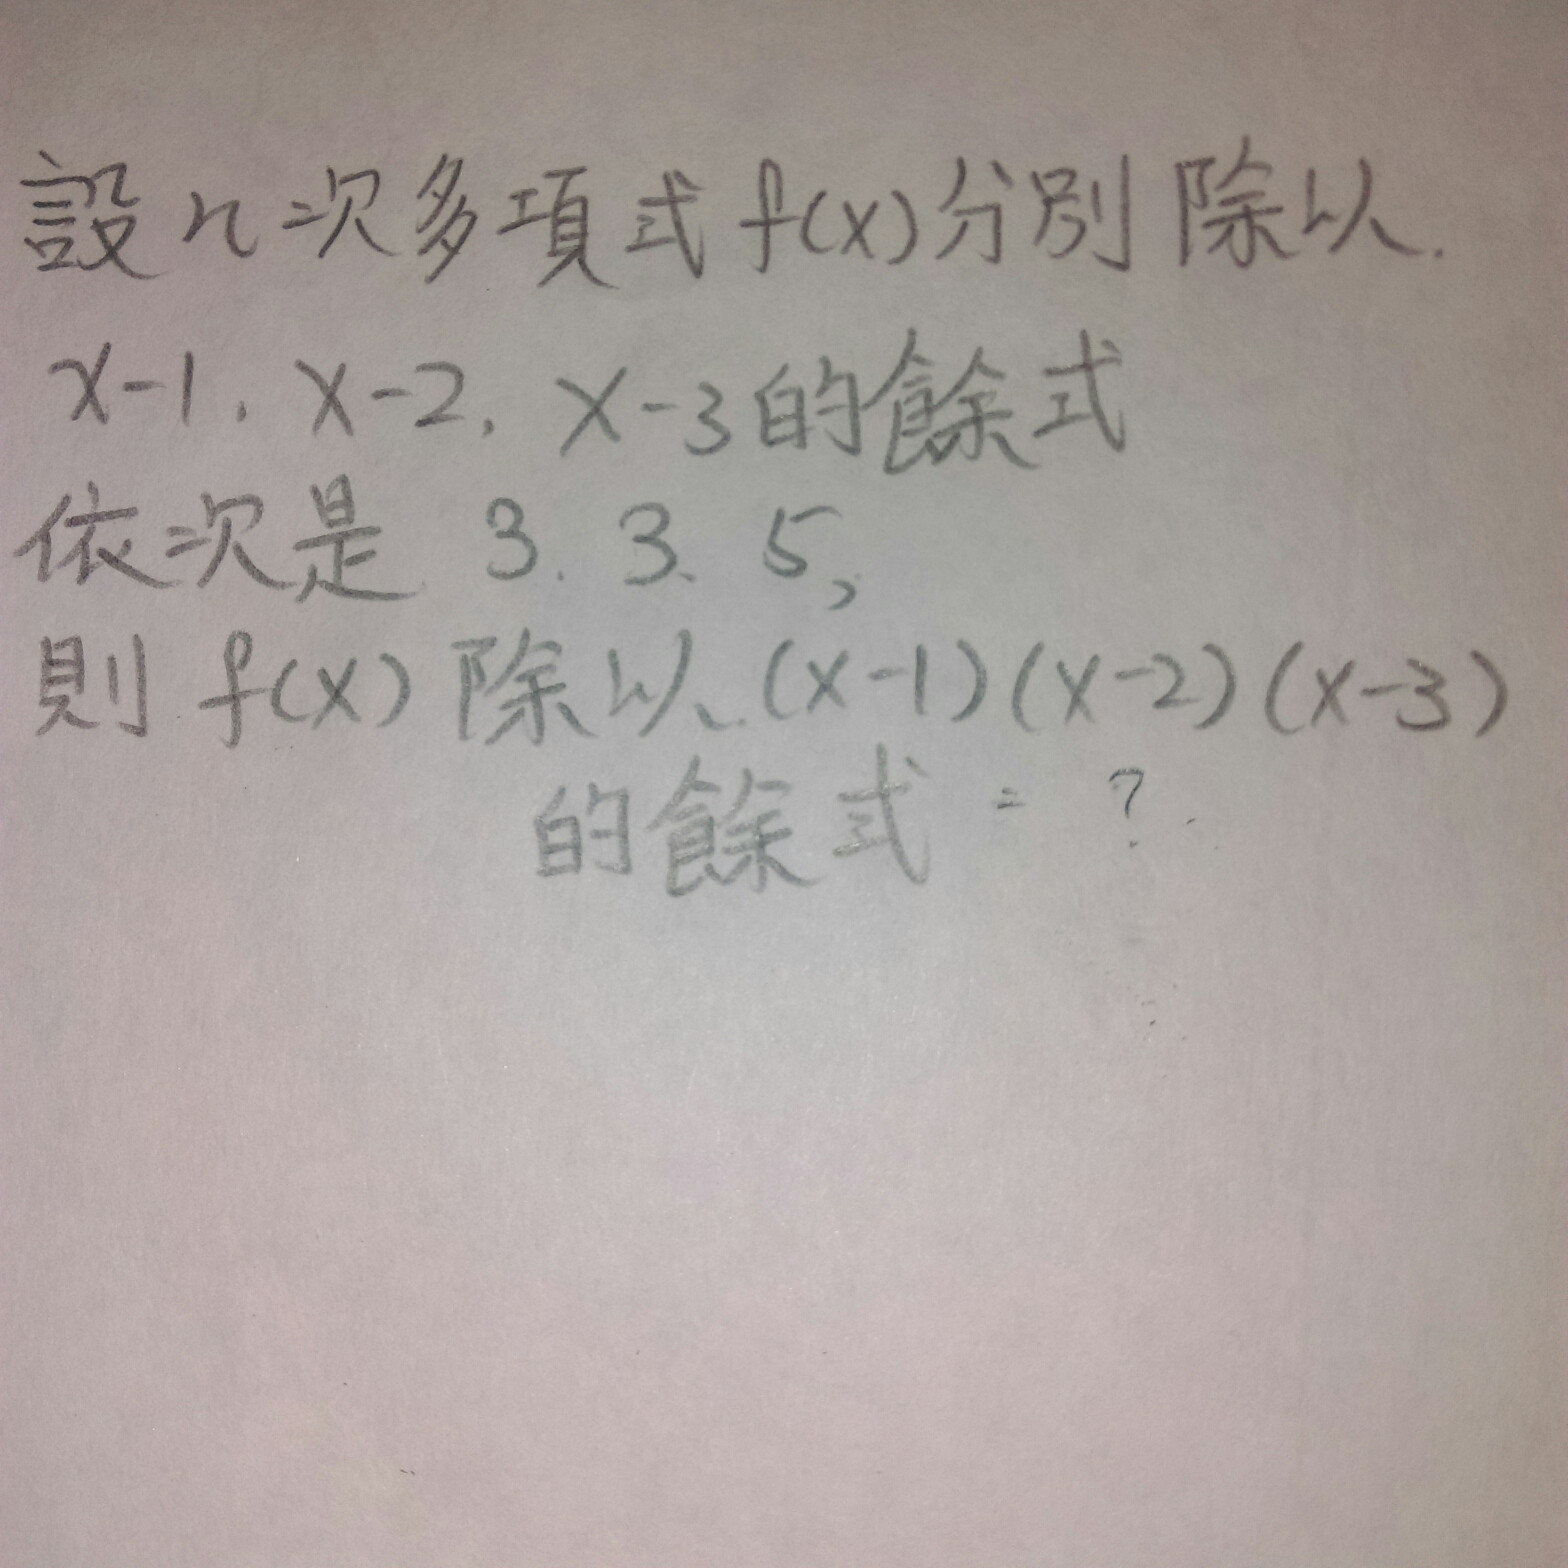 設n次多項式f(x)分別除以.
x-1. x-2. x-3的餘式
依次是 3. 3. 5,
則 f(x) 除以 (x-1)(x-2)(x-3)
的餘式 = ?